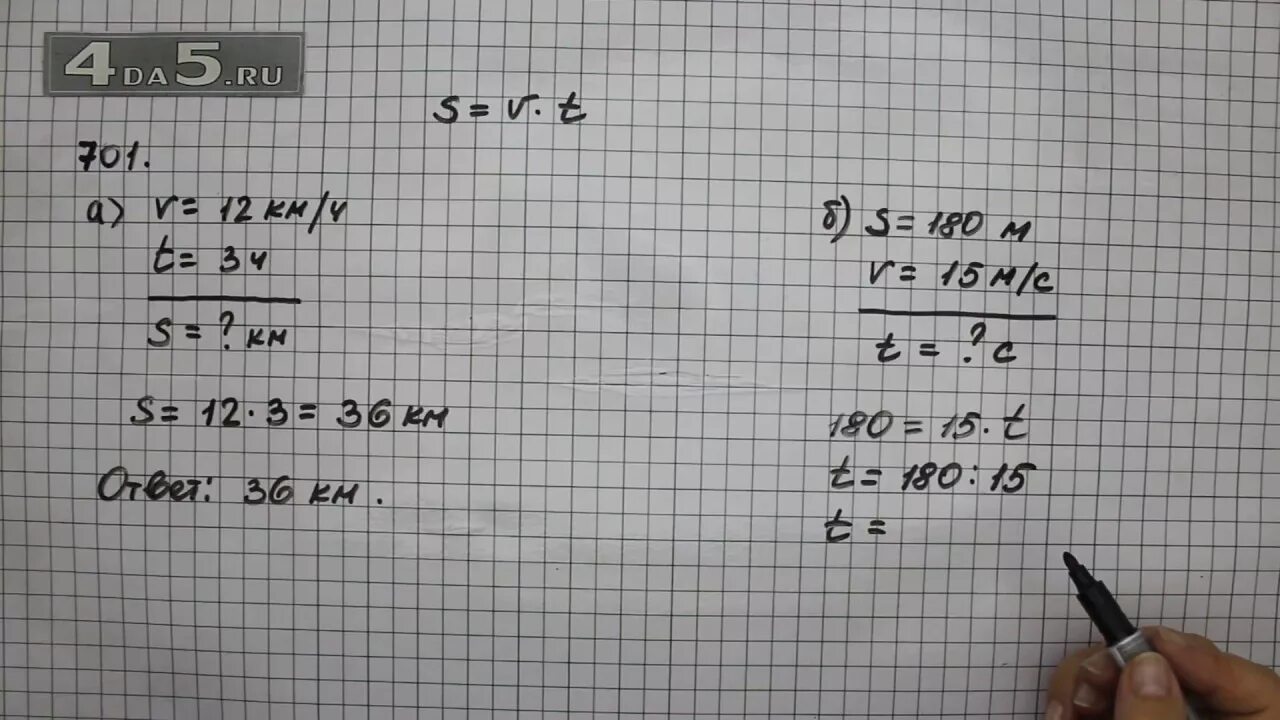 4DA5.RU
S = v · t
701.
а) v = 12 км/ч
t = 3 ч
S = ? км
S = 12 · 3 = 36 км
Ответ: 36 км.
б) S = 180 м
v = 15 м/с
t = ? с
180 = 15 · t
t = 180 : 15
t =